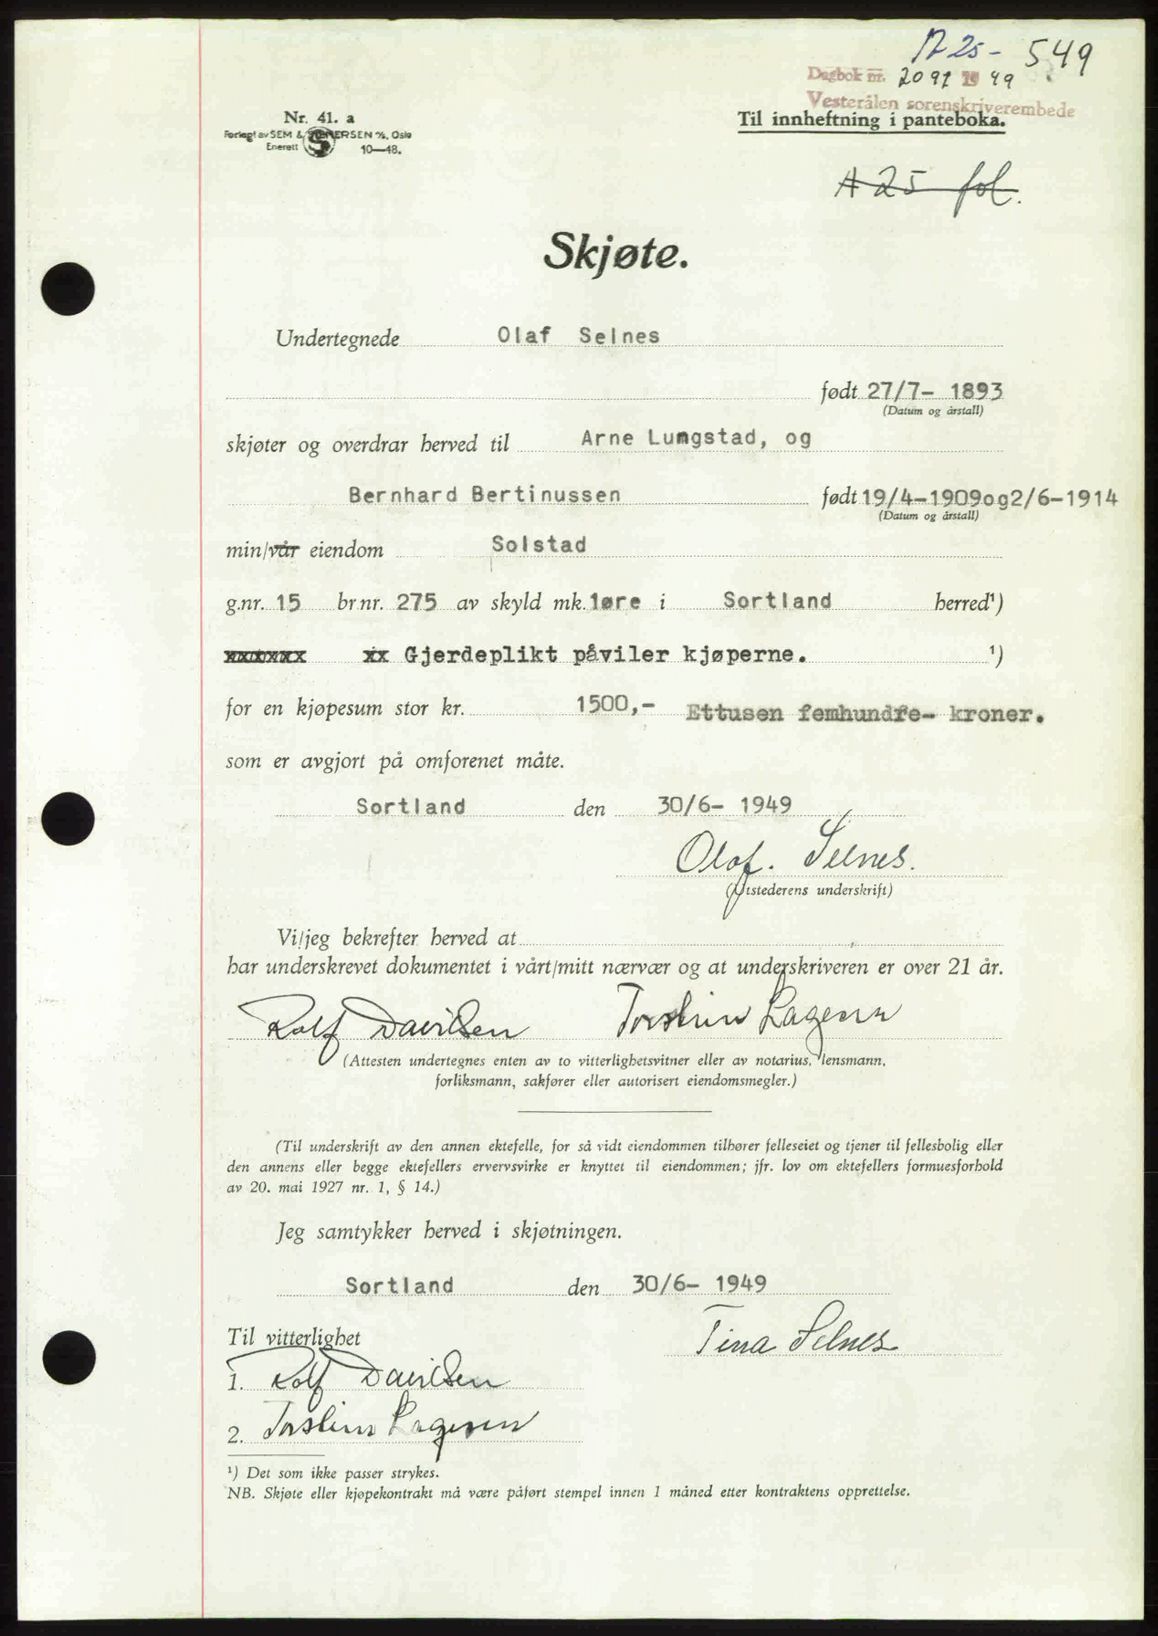 A 25 - 549
Dagbok nr. 2091 19 49
Vesterålen sorenskriverembede
Nr. 41. a
Til innheftning i panteboka.
Forlagt av SEM & STENERSEN A/S, Oslo
Enerett S 10—48.
A 25 fol.
Skjøte.
Undertegnede Olaf Selnes
født 27/7- 1893
(Datum og årstall)
skjøter og overdrar herved til Arne Lungstad, og
Bernhard Bertinussen født 19/4-1909og2/6-1914
(Datum og årstall)
min/vår eiendom Solstad
g.nr. 15 br.nr. 275 av skyld mk. 1øre i Sortland herred¹)
xxxxxxx xx Gjerdeplikt påviler kjøperne. ¹)
for en kjøpesum stor kr. 1500,- Ettusen femhundre- kroner.
som er avgjort på omforenet måte.
Sortland den 30/6- 1949
Olaf. Selnes.
(Utstederens underskrift)
Vi/jeg bekrefter herved at
har underskrevet dokumentet i vårt/mitt nærvær og at underskriveren er over 21 år.
Rolf Davilsen Torstein Lagesen
(Attesten undertegnes enten av to vitterlighetsvitner eller av notarius, lensmann,
forliksmann, sakfører eller autorisert eiendomsmegler.)
(Til underskrift av den annen ektefelle, for så vidt eiendommen tilhører felleseiet og tjener til fellesbolig eller
den annens eller begge ektefellers ervervsvirke er knyttet til eiendommen; jfr. lov om ektefellers formuesforhold
av 20. mai 1927 nr. 1, § 14.)
Jeg samtykker herved i skjøtningen.
Sortland den 30/6- 1949
Til vitterlighet Tina Selnes
1. Rolf Davilsen
2. Torstein Lagesen
¹) Det som ikke passer strykes.
NB. Skjøte eller kjøpekontrakt må være påført stempel innen 1 måned etter kontraktens opprettelse.